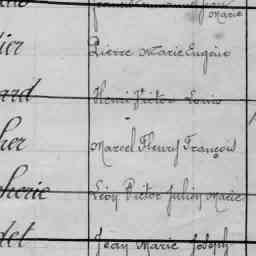 Marie
ier Pierre Marie Eugène
ard Henri Victor Louis
her Marcel Fleury François
herie Léon Victor Julien Marie
det Jean Marie Joseph